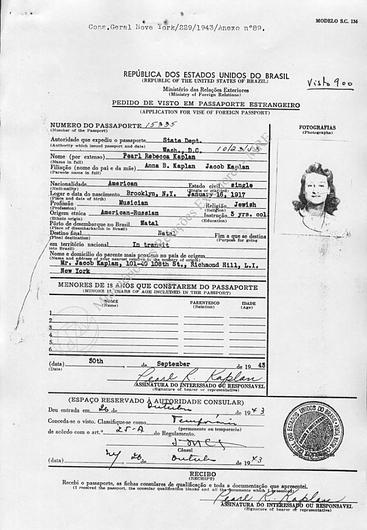 Cons.Geral Nova York/229/1943/Anexo nº89.
MODELO S.C. 136
REPÚBLICA DOS ESTADOS UNIDOS DO BRASIL
(REPUBLIC OF THE UNITED STATES OF BRAZIL)
Visto 900
Ministério das Relações Exteriores
(Ministry of Foreign Relations)
PEDIDO DE VISTO EM PASSAPORTE ESTRANGEIRO
(APPLICATION FOR VISE OF FOREIGN PASSPORT)
NUMERO DO PASSAPORTE 15335
(Number of the Passport)
FOTOGRAFIAS
(Photographs)
Autoridade que expediu o passaporte State Dept.
(Authority which issued passport and date) Wash., D.C.
Nome (por extenso) Pearl Rebecca Kaplan
(Name in full)
Filiação (nome do pai e da mãe) Anna B. Kaplan Jacob Kaplan
(Parents name in full)
Nacionalidade American Estado civil single
(Nationality)
Lugar e data do nascimento Brooklyn, N.Y. January 16, 1917
(Place and date of birth)
Profissão Musician Religião Jewish
(Profession) (Religion)
Origem etnica American-Russian Instrução 3 yrs. col
Pôrto de desembarque no Brasil Natal
(Place of desembarkation in Brazil)
Destino final Natal Fim a que se destina
(Final destination) (Purpose for going into)
em territorio nacional In transit
Nome e domicilio do parente mais proximo no pais de origem
(Name and address of near nearest relative in the country of origin)
Mr. Jacob Kaplan, 101-40 108th St., Richmond Hill, L.I.
New York
MENORES DE 18 AÑOS QUE CONSTAREM DO PASSAPORTE
(MINORS 18 YEARS OF AGE INCLUDED IN THE PASSPORT)
NOME PARENTESCO IDADE
(Name) (Relation) (Age)
1.
2.
3.
4.
5.
(data) 30th de September de 19 43
(Date)
Pearl R. Kaplan
ASSINATURA DO INTERESSADO OU RESPONSAVEL
(Signature of bearer or representative)
(ESPAÇO RESERVADO À AUTORIDADE CONSULAR)
Deu entrada em 20 de Outubro de 19 43
Conceda-se o visto. Classifique-se como Temporário
(permanente ou temporario)
de acôrdo com o art.º 25-A do Regulamento.
Cônsul
(data) NY 20 de Outubro de 19 43
RECIBO
(RECEIPT)
Recebi o passaporte, as fichas consulares de qualificação e toda a documentação que apresentei.
Pearl R. Kaplan
ASSINATURA DO INTERESSADO OU RESPONSAVEL
(Signature of bearer or representative)